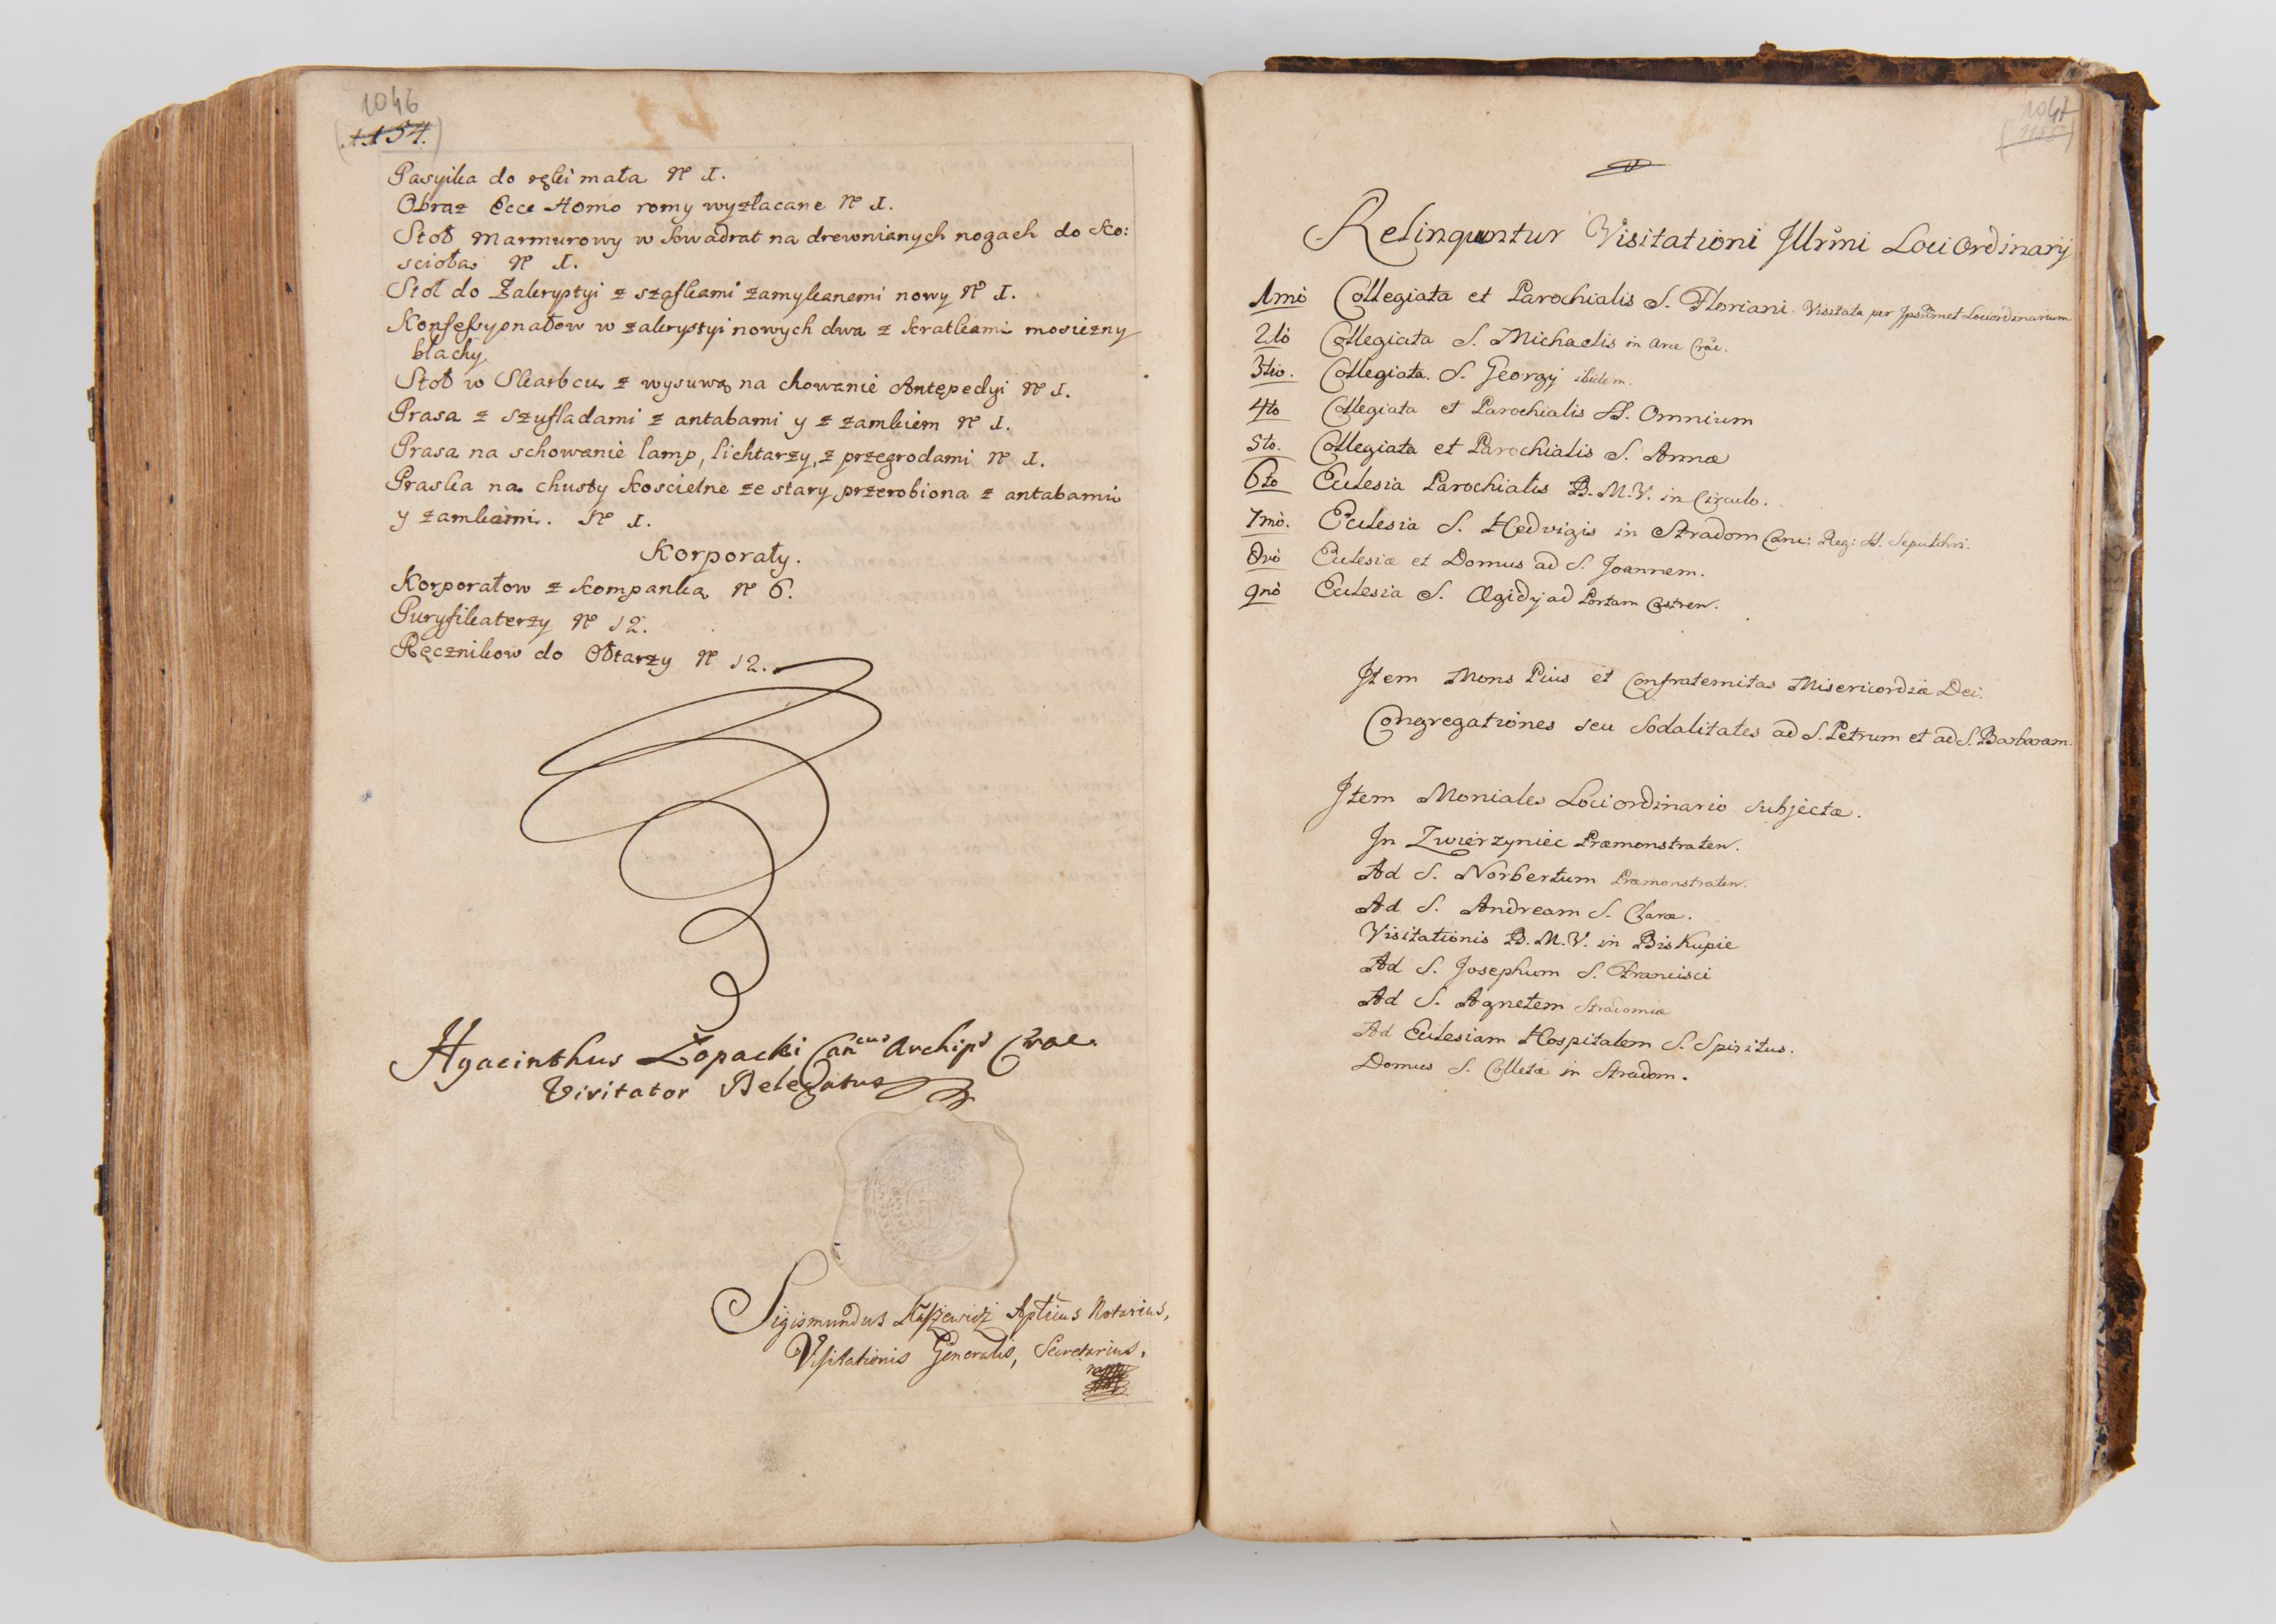 1046
(1154.)
Pasyika do ręki mała Nº 1.
Obraz Ecce Homo romy wyzłacane Nº 1.
Stoł Marmurowy w kwadrat na drewnianych nogach do ko:
scioła Nº 1.
Stoł do Zakryptyi z szafkami zamykanemi nowy Nº 1.
Konfessyonałow w zakrystyi nowych dwa z kratkami mosiezny
blachy
Stoł w Skarbcu z wysuwą na chowanie Antępedyi Nº 1.
Prasa z szufladami z antabami y z zamkiem Nº 1.
Prasa na schowanie lamp, lichtarzy, z przegrodami Nº 1.
Praska na chusty koscielne ze stary przerobiona z antabami
y zamkami. Nº 1.
Korporały.
Korporałow z kompanką Nº 6.
Puryfikaterzy Nº 12.
Ręcznikow do Ołtarzy Nº 12.
Hyacinthus Łopacki Cancus Archips Crac.
Visitator Delegatus
Sigismundus Aptcus Notarius,
Visitationis Generalis, Secretarius,
1047
Relinquntur Visitationi Illrmi Loci Ordinarij
1mo Collegiata et Parochialis S. Floriani. Visitata per Ipsumet Lociordinarium
2do Collegiata S. Michaelis in Arce Crac.
3tio. Collegiata. S. Georgij ibidem.
4to Collegiata et Parochialis SS. Omnium
5to. Collegiata et Parochialis S. Annæ
6to Ecclesia Parochialis B. M. V. in Circulo.
7mo. Ecclesia S. Hedvigis in Stradom Canc: Reg: S. Sepulchri.
8vo Ecclesia et Domus ad S. Joannem.
9no Ecclesia S. Ægidij ad Portam Castren.
Item Mons Pius et Confraternitas Misericordiæ Dei.
Congregationes seu Sodalitates ad S. Petrum et ad S. Barbaram.
Item Moniales Lociordinario subjectæ.
In Zwierzyniec Præmonstraten.
Ad S. Norbertum Præmonstraten.
Ad S. Andream S. Claræ.
Visitationis B. M. V. in Biskupie
Ad S. Josephum S. Francisci
Ad S. Agnetem Stradomiæ
Ad Ecclesiam Hospitalem S. Spiritus.
Domus S. Colletæ in Stradom.